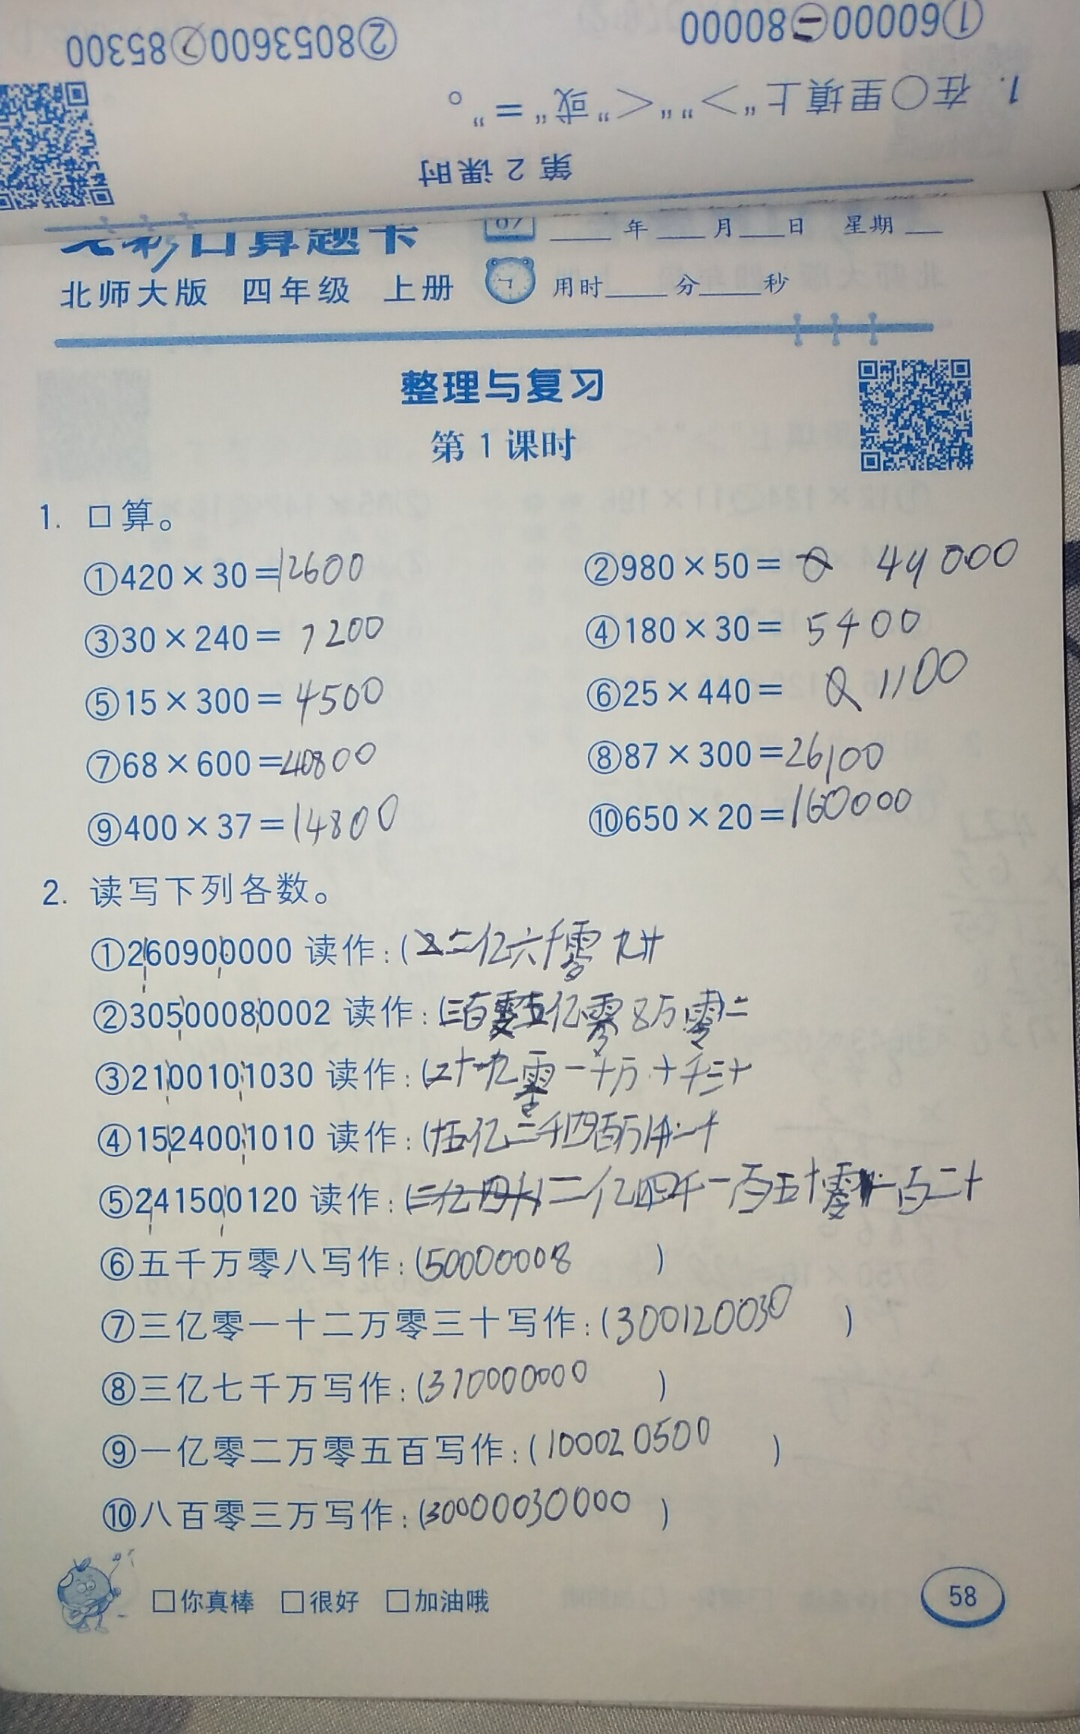 ①60000＝80000 ②8053600 85300
1. 在○里填上“＞”“＜”或“＝”。
第 2 课时
口算题卡 67 年 月 日 星期
北师大版 四年级 上册 用时 分 秒
整理与复习
第 1 课时
1. 口算。
①420×30=12600 ②980×50= 49000
③30×240= 7200 ④180×30= 5400
⑤15×300= 4500 ⑥25×440= 1100
⑦68×600=40800 ⑧87×300=26100
⑨400×37=14800 ⑩650×20=160000
2. 读写下列各数。
①260900000 读作:(二亿六千零九十
②30500080002 读作:(三百零五亿零8万零二
③2100101030 读作:(二十一九零一十万十千三十
④1524001010 读作:(十五亿二千四百万 一千
⑤241500120 读作:(二亿四千一百五十零 一百二十
⑥五千万零八写作:(50000008 )
⑦三亿零一十二万零三十写作:(300120030 )
⑧三亿七千万写作:(370000000 )
⑨一亿零二万零五百写作:(100020500 )
⑩八百零三万写作:(30000030000 )
□你真棒 □很好 □加油哦 58